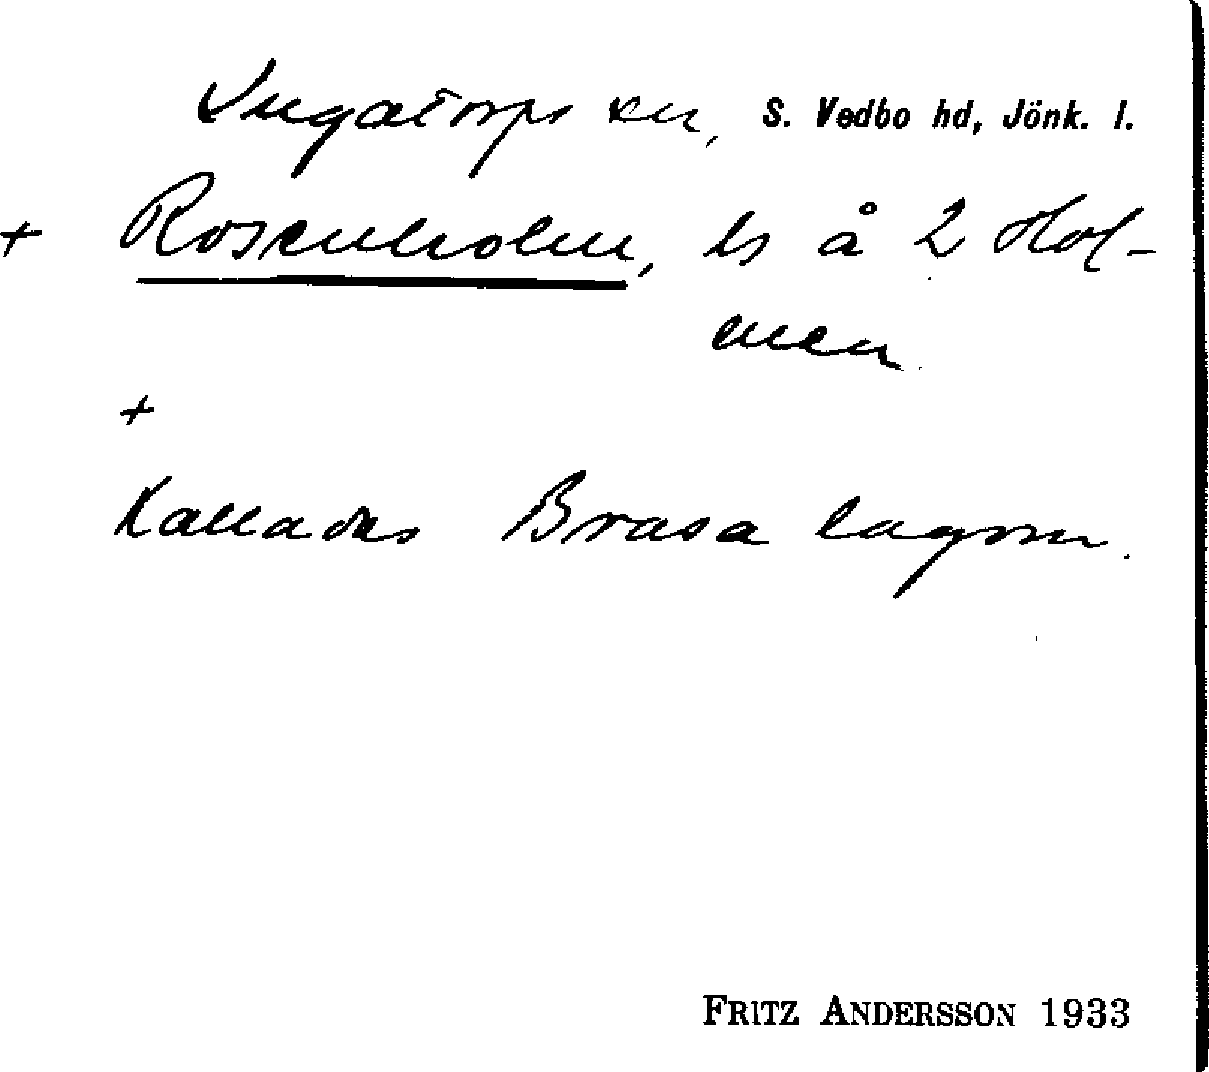 Ingatorps sn, S. Vedbo hd, Jönk. l.
+ Rosenholm, ls å 2 Hol-
men.
+
Kallades Brasa lagom.
FRITZ ANDERSSON 1933